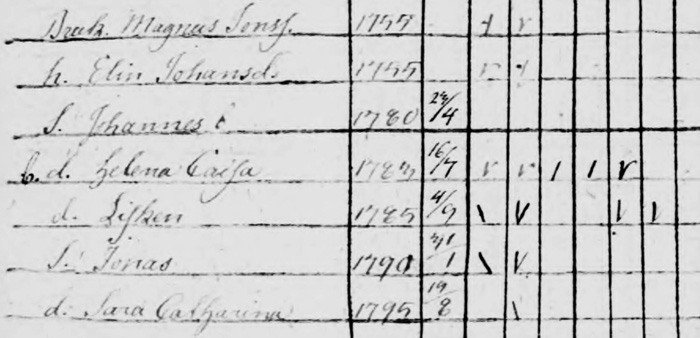 Bruk. Magnus Jonss. 1755
h. Elin Johansd. 1755
S. Johannes 1780 28/4
b. d. Helena Caisa 1783 16/7
d. Lisken 1785 4/9
S. Jonas 1790 31/1
d. Sara Catharina 1795 19/8